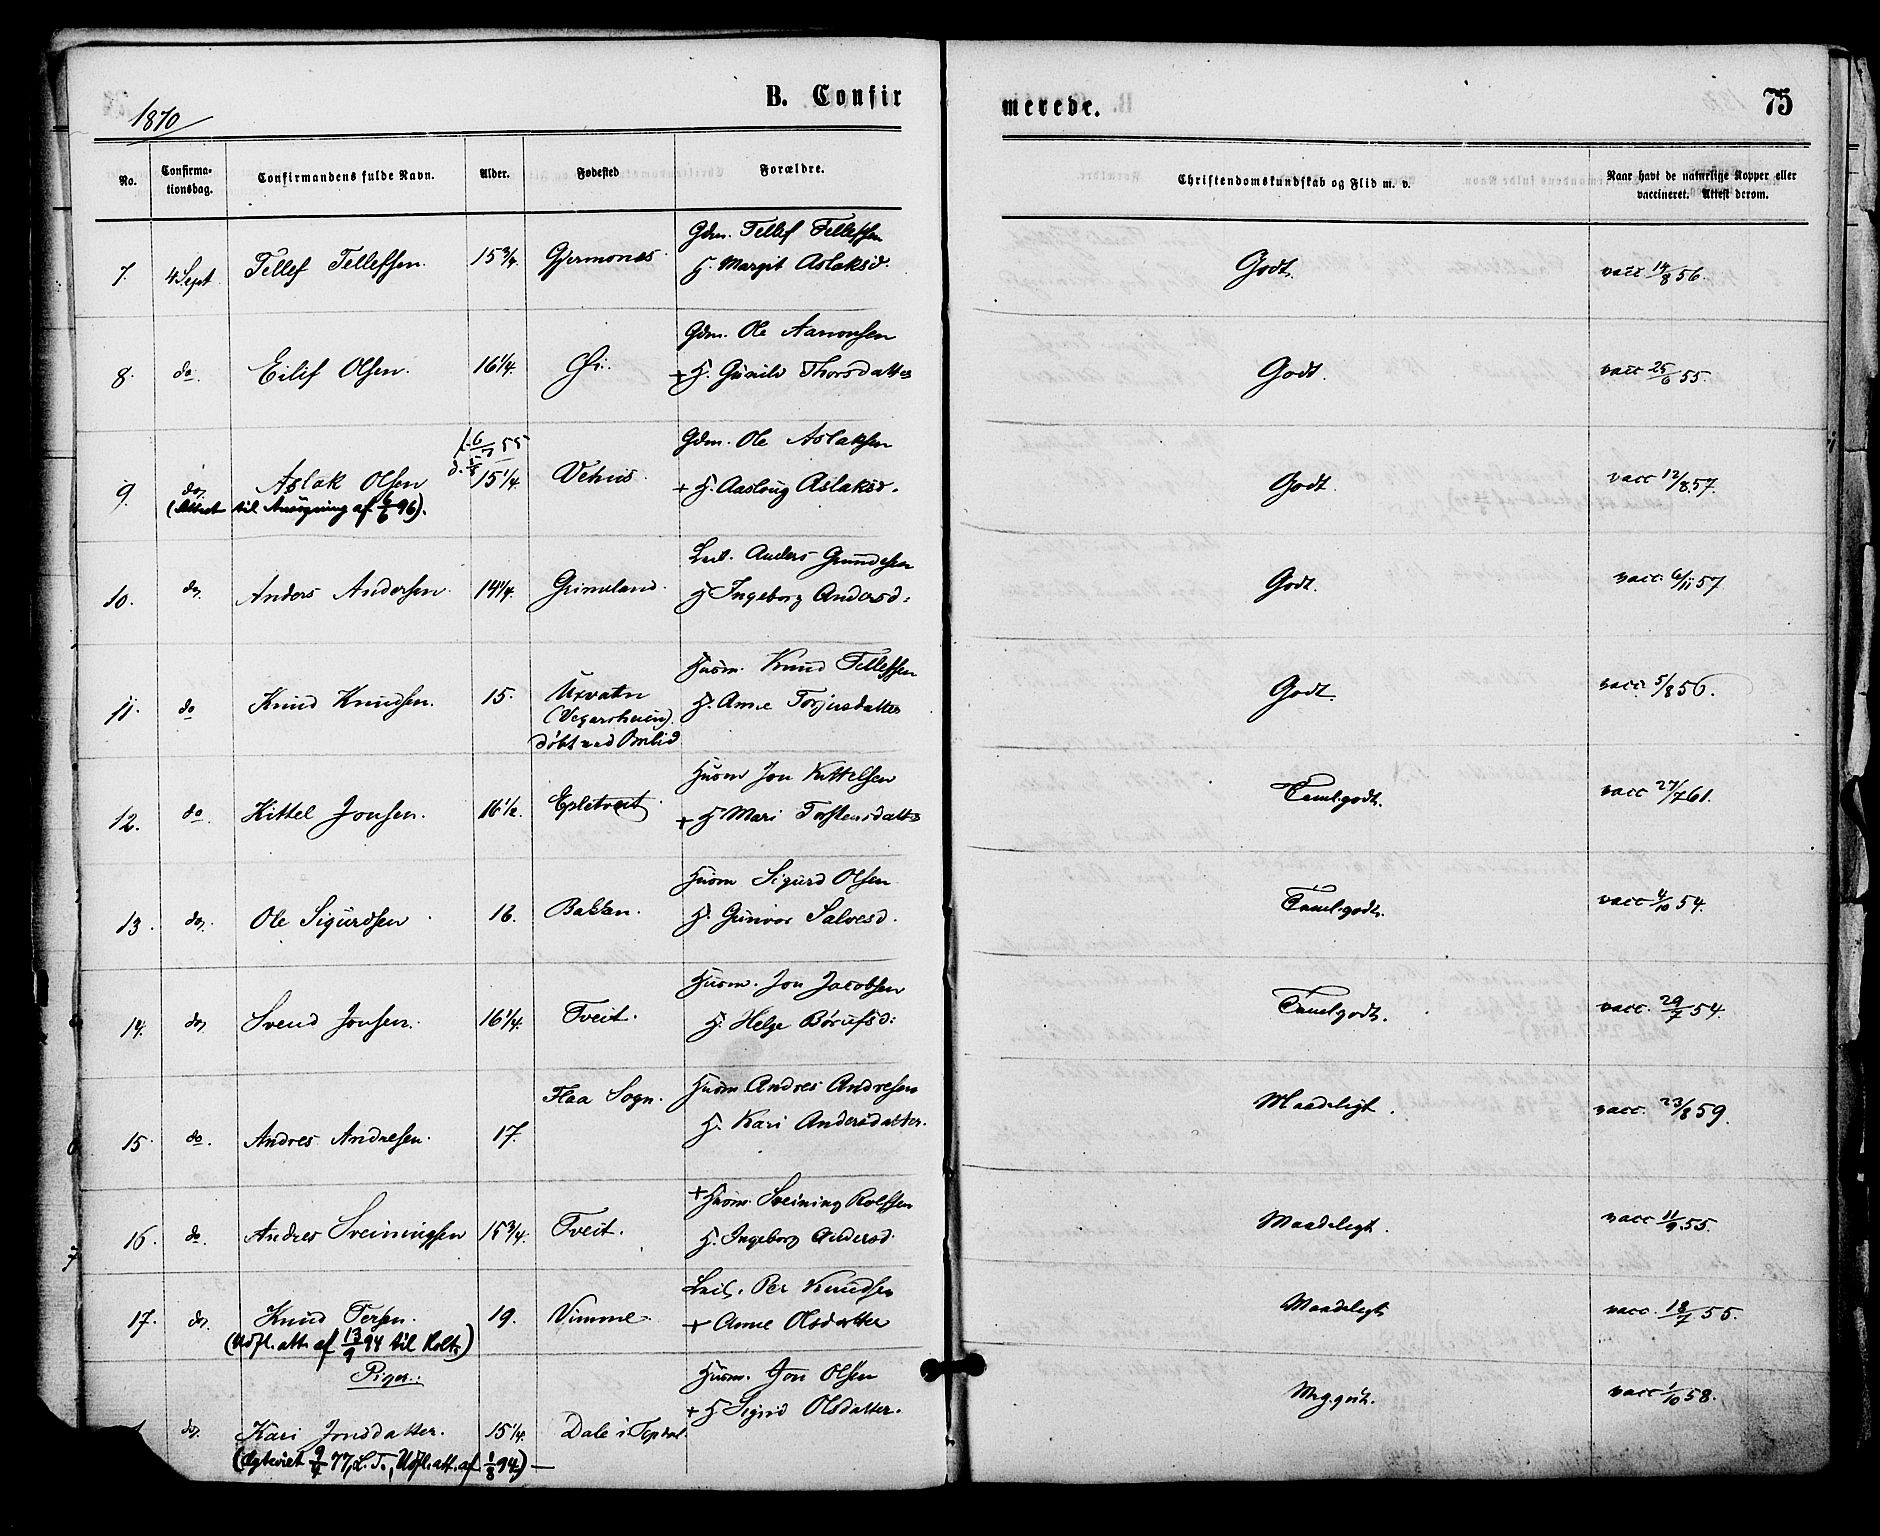 1870
B. Confirmerede.
75
No.
Confirmationsdag.
Confirmandens fulde Navn.
Alder.
Fødested
Forældre.
Christendomskundskab og Flid m. v.
Naar havt de naturlige Kopper eller vaccineret. Attest derom.
7 4 Sept. Tellef Tellefsen. 15 3/4. Gjermonæs. Gdm. Tellef Tellefsen
H. Margit Aslaksd. Godt. vacc 14/8 56.
8. do. Eilif Olsen. 16 1/4. Øi. Gdm. Ole Aanonsen
+ H. Gunild Thorsdatter Godt. vacc 25/6 55.
f. 6/7 55
d. 5/8
9. do. Aslak Olsen 15 1/4. Vehus. Gdm. Ole Aslaksen
+ H. Aaslaug Aslaksd. Godt. vacc 12/8 57.
(Attest til Ansøgning af 6/6 96).
10. do. Anders Andersen. 14 1/4. Grimeland. Anders Gundesen
H. Ingeborg Andersd. Godt. vacc. 6/11 57
11. do Knud Knudsen. 15. Uxvatn
(Vegarsheien).
døbt ved Omlid Husm. Knud Tellefsen
H. Anne Torjusdatter Godt. vacc 5/8 56.
12. do. Kittel Jonsen. 16 1/2. Epletveit. Husm Jon Kittelsen
+ H Mari Torstensdatter Teml.godt. vacc 27/7 61.
13. do. Ole Sigurdsen 16. Bakken. Husm Sigurd Olsen
H. Gunvor Salvesd. Teml.godt. vacc 4/10 54.
14. do. Svend Jonsen. 16 1/4. Tveit. Husm. Jon Jacobsen
H. Helge Børufsd. Temlgodt. vacc. 29/7 54.
15. do. Andres Andresen. 17. Flaa Sogn. Husm. Andres Andresen
H. Kari Andersdatter. Maadeligt. vacc. 23/8 59.
16. do. Andres Sveiningsen 15 3/4. Tveit. + Husm. Sveining Rolfsen
H. Ingeborg Andersd. Maadeligt. vacc 11/9 55.
17. do. Knud Persen. 19. Vimme. Per Knudsen
+ Anne Olsdatter Maadeligt vacc. 18/7 55.
(Udfl. att. af 13/9 94 til Holt)
Piger:
do. Kari Jonsdatter. 15 1/4. Dale i Topdal Husm. Jon Olsen
+ H Sigrid Olsdatter. Mg.godt. vacc 1/10 58.
(Egteviet 9/4 77, L. T., Udfl. att. af 1/8 94)